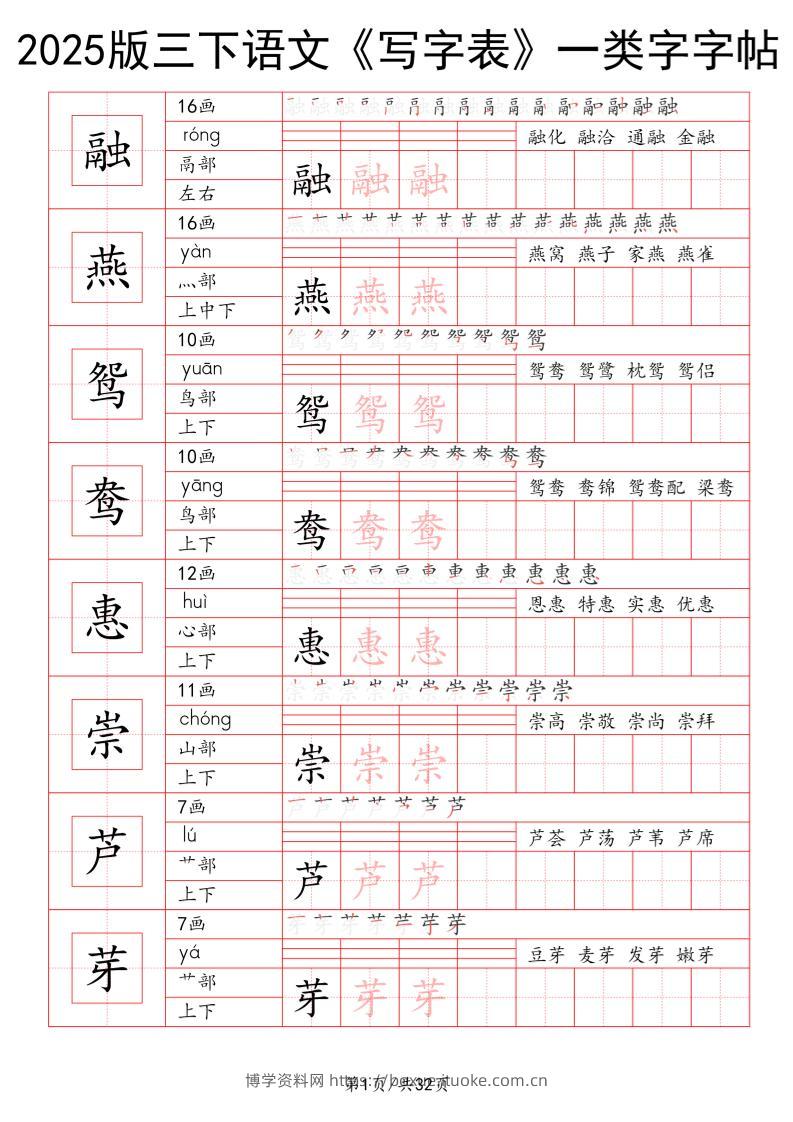 2025版三下语文《写字表》一类字字帖
融
16画
róng
融化 融洽 通融 金融
鬲部
左右
融 融 融
燕
16画
yàn
燕窝 燕子 家燕 燕雀
灬部
上中下
燕 燕 燕
鸳
10画
yuān
鸳鸯 鸳鹭 枕鸳 鸳侣
鸟部
上下
鸳 鸳 鸳
鸯
10画
yāng
鸳鸯 鸯锦 鸳鸯配 梁鸯
鸟部
上下
鸯 鸯 鸯
惠
12画
huì
恩惠 特惠 实惠 优惠
心部
上下
惠 惠 惠
崇
11画
chóng
崇高 崇敬 崇尚 崇拜
山部
上下
崇 崇 崇
芦
7画
lú
芦荟 芦荡 芦苇 芦席
艹部
上下
芦 芦 芦
芽
7画
yá
豆芽 麦芽 发芽 嫩芽
艹部
上下
芽 芽 芽
博学资料网
第1页/共32页